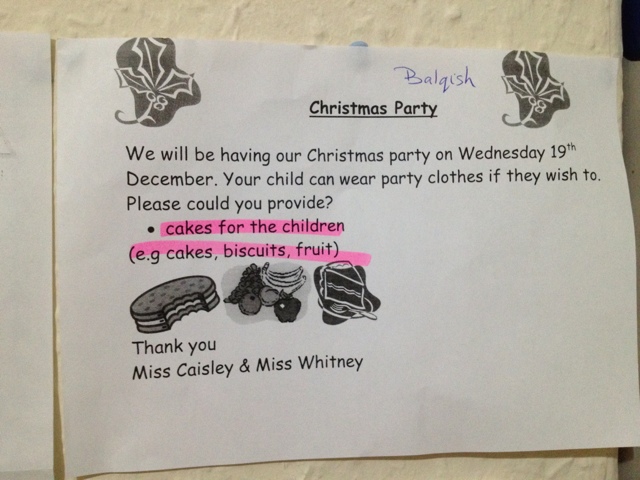 Balqish
Christmas Party
We will be having our Christmas party on Wednesday 19th
December. Your child can wear party clothes if they wish to.
Please could you provide?
• cakes for the children
(e.g cakes, biscuits, fruit)
Thank you
Miss Caisley & Miss Whitney